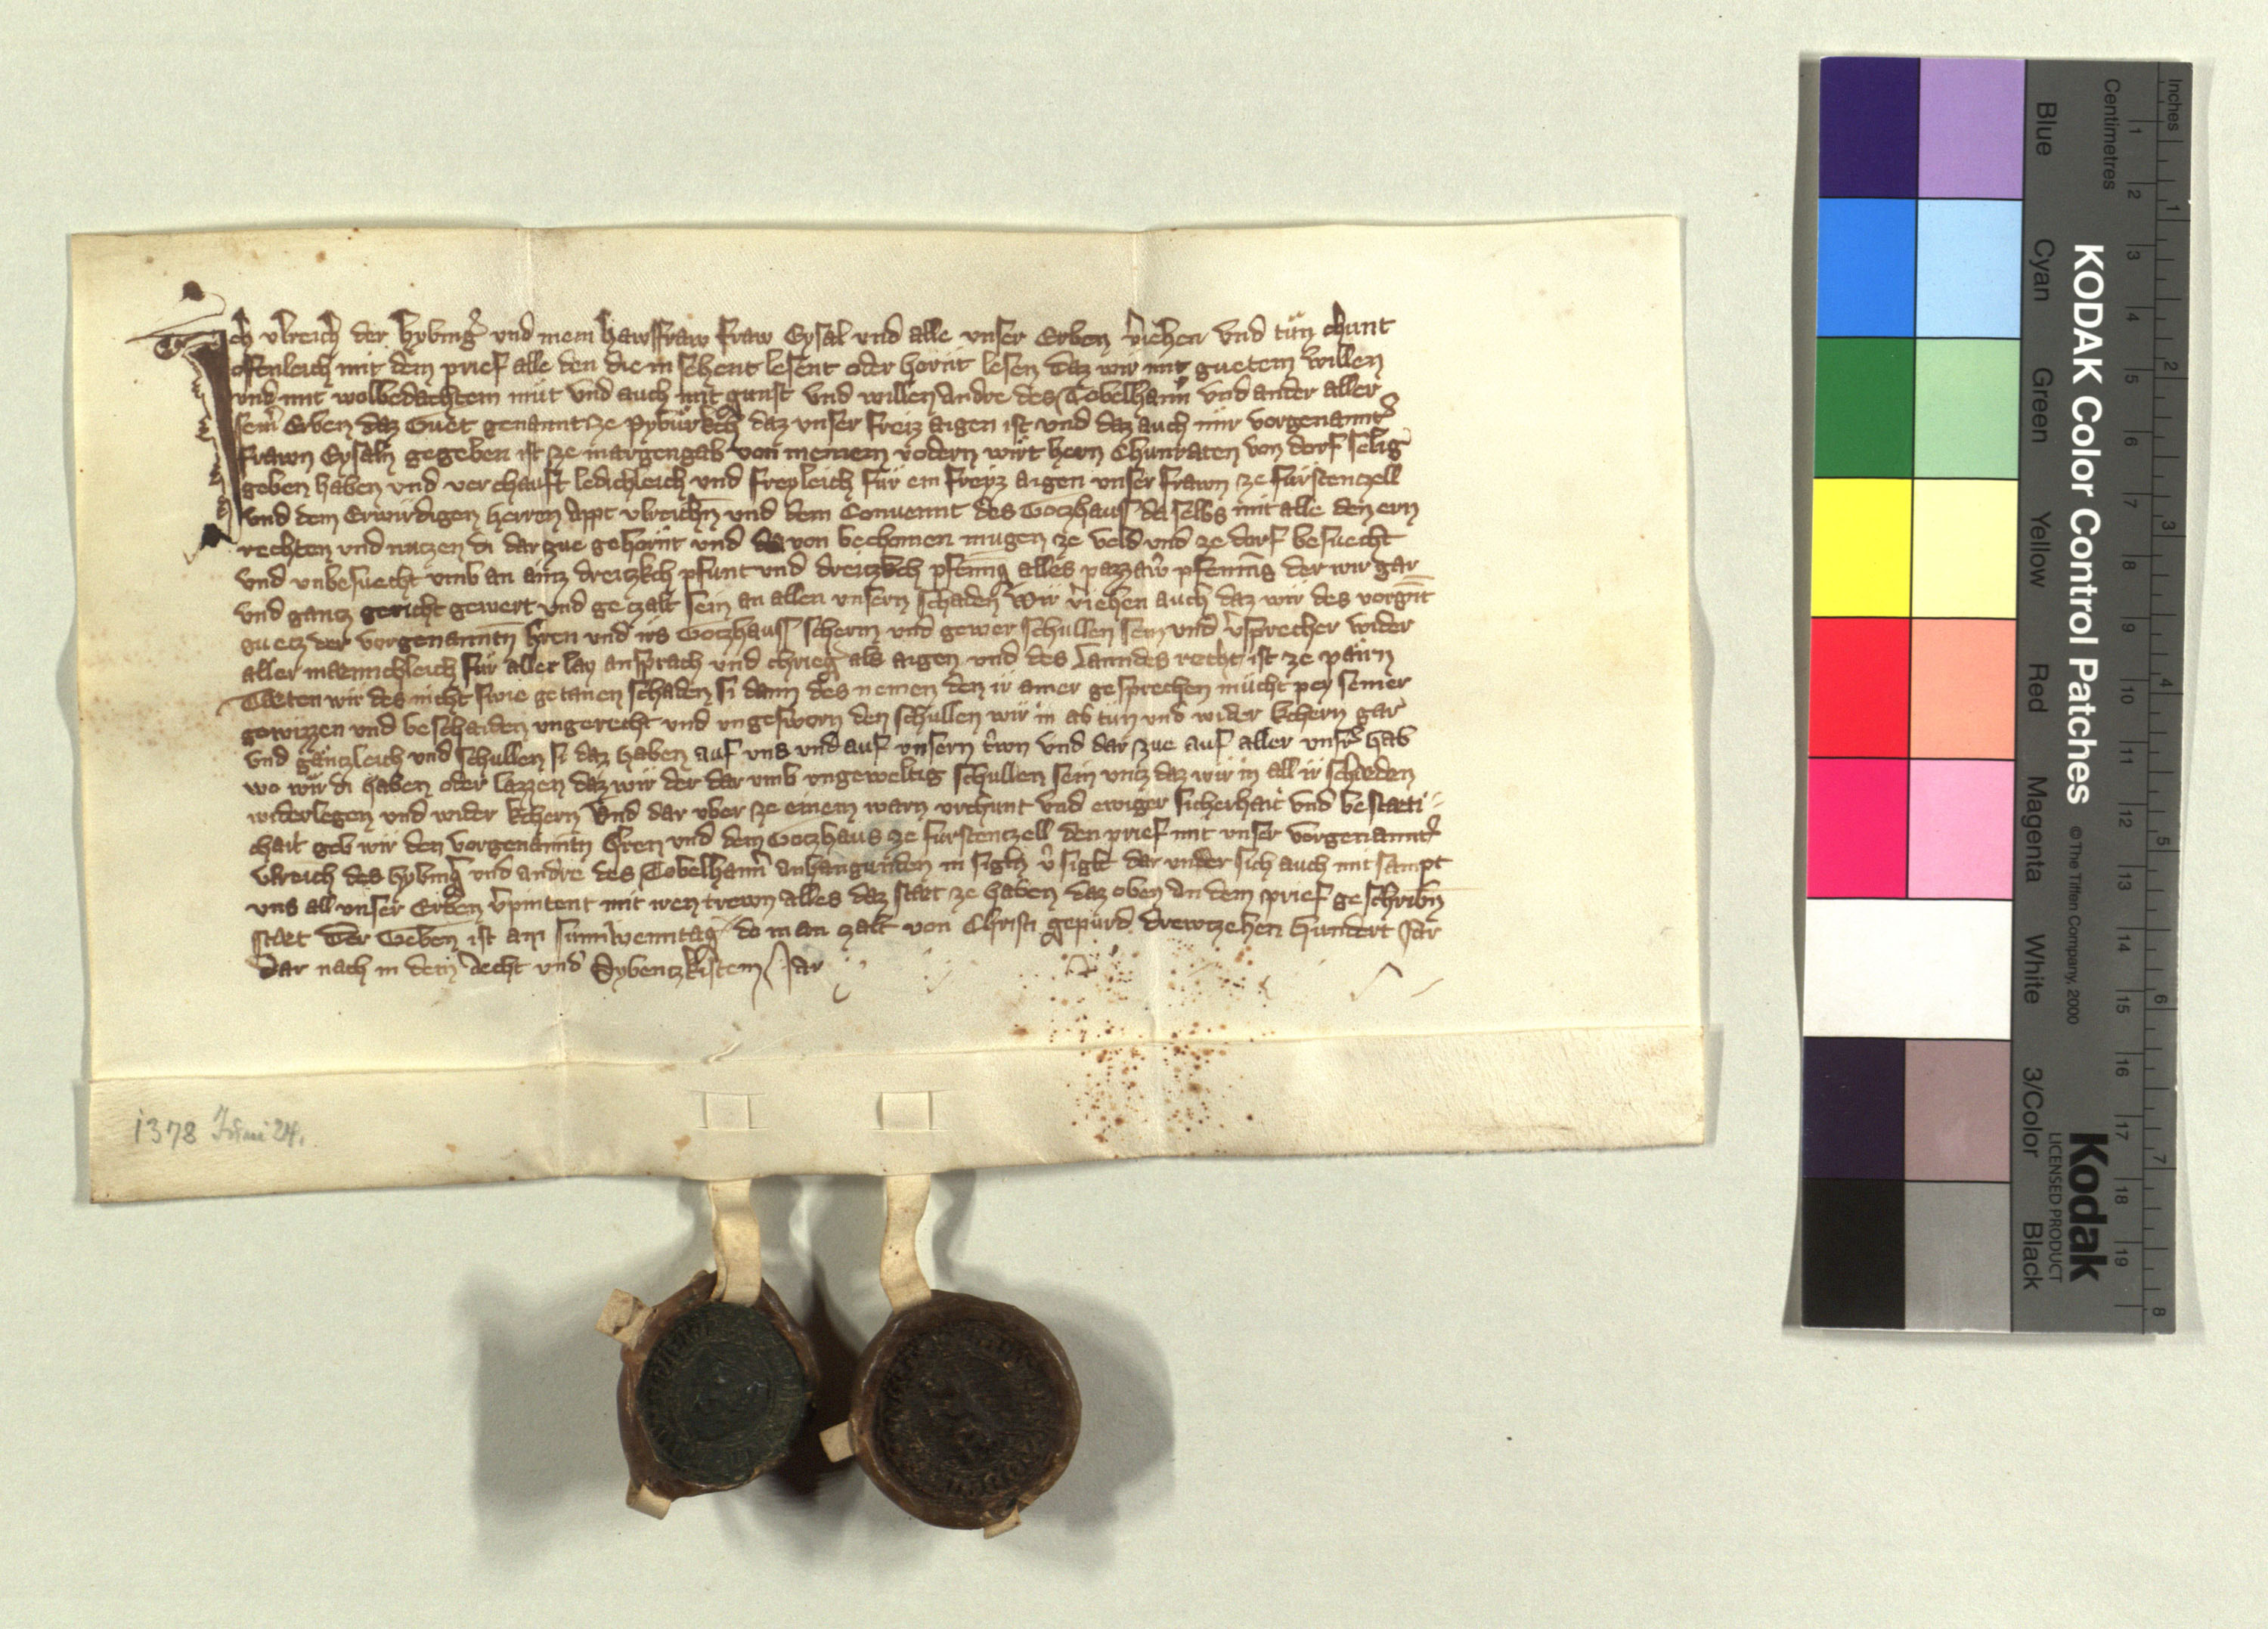 Ich Ulreich der Hybing(er) und mein hawsfraw fraw Eysal und alle unser Erben v(er)iehen und tün chunt
offenleich mit dem prief alle den die in sehent lesent oder hörnt lesen daz wir mit guetem willen
und mit wolbedachtem müt und auch mit gunst und willen Andre des Tobelhaim(er) und ander aller
sein(er) Erben daz Guet genannt ze Pybürkch daz unser freiz aigen ist und daz auch mir vorgenannt(er)
frawn Eysaln gegeben ist ze margengab von meinem vodern wirt hern Chunraten von dorf selig
geben haben und verchauft ledichleich und freyleich für ein freyz aigen unser frawn ze Fürstenczell
und dem Erwirdigen herren Appt Ulreichn und dem Convennt des Gotzhauss da selbs mit alle den ern
rechten und nutzen di dar zue gehörnt und da von bechomen mugen ze veld und ze dorf besuecht
und unbesuecht umb an ainz dreitzkch pfunt und dreitzkch pfening alles pazzaw(er) pfening der wir gar
und gantz gericht gewert und geczalt sein an allen unsern schaden Wir v(er)iehen auch daz wir des vorgn̄t
guetz der vorgenanntn h(er)ren und irs Gotzhauss scherm und gewer schullen sein und v(er)sprecher wider
aller maennichleich für aller lay ansprach und chrieg als aigen und des Lanndes recht ist ze pairn
Taeten wir des nicht swie getanen schaden si dann des nemen den ir ainer gesprechen mücht pey seiner
gewizzen und beschaiden ungerecht und ungesworn den schullen wir in ab tün und wider kchern gar
und gänczleich und schullen si daz haben auf uns und auf unsern trwn und dar zue auf aller unsr(er) hab
wo wir di haben oder lazzen daz wir der dar umb ungeweltig schullen sein untz daz wir in all ir schaeden
widerlegen und wider kchern Und dar uber ze einem warn urchunt und ewiger sicherhait und bestaeti-
chait geb wir den vorgenanntn h(er)ren und dem Gotzhaus ze fürstenczell den prief mit unser vorgenannt(er)
Ulreich des hybing(er) und andre des Tobelhaim(er) anhangunden in sigln v(er)sigelt dar under sich auch mit sampt
uns all unser Erben v(er)pintent mit iren trewn alles daz staet ze haben daz oben an dem prief geschribn
staet Der Geben ist am sunnwenntag do man zalt von Christi gepurd drewtzehen hundert Jar
dar nach in dem Aecht und Sybentzkistem Jar
1378 Juni 24.
KODAK Color Control Patches
© The Tiffen Company, 2000
Kodak
LICENSED PRODUCT
Inches
Centimetres
1 2 3 4 5 6 7 8
1 2 3 4 5 6 7 8 9 10 11 12 13 14 15 16 17 18 19
Blue Cyan Green Yellow Red Magenta White 3/Color Black